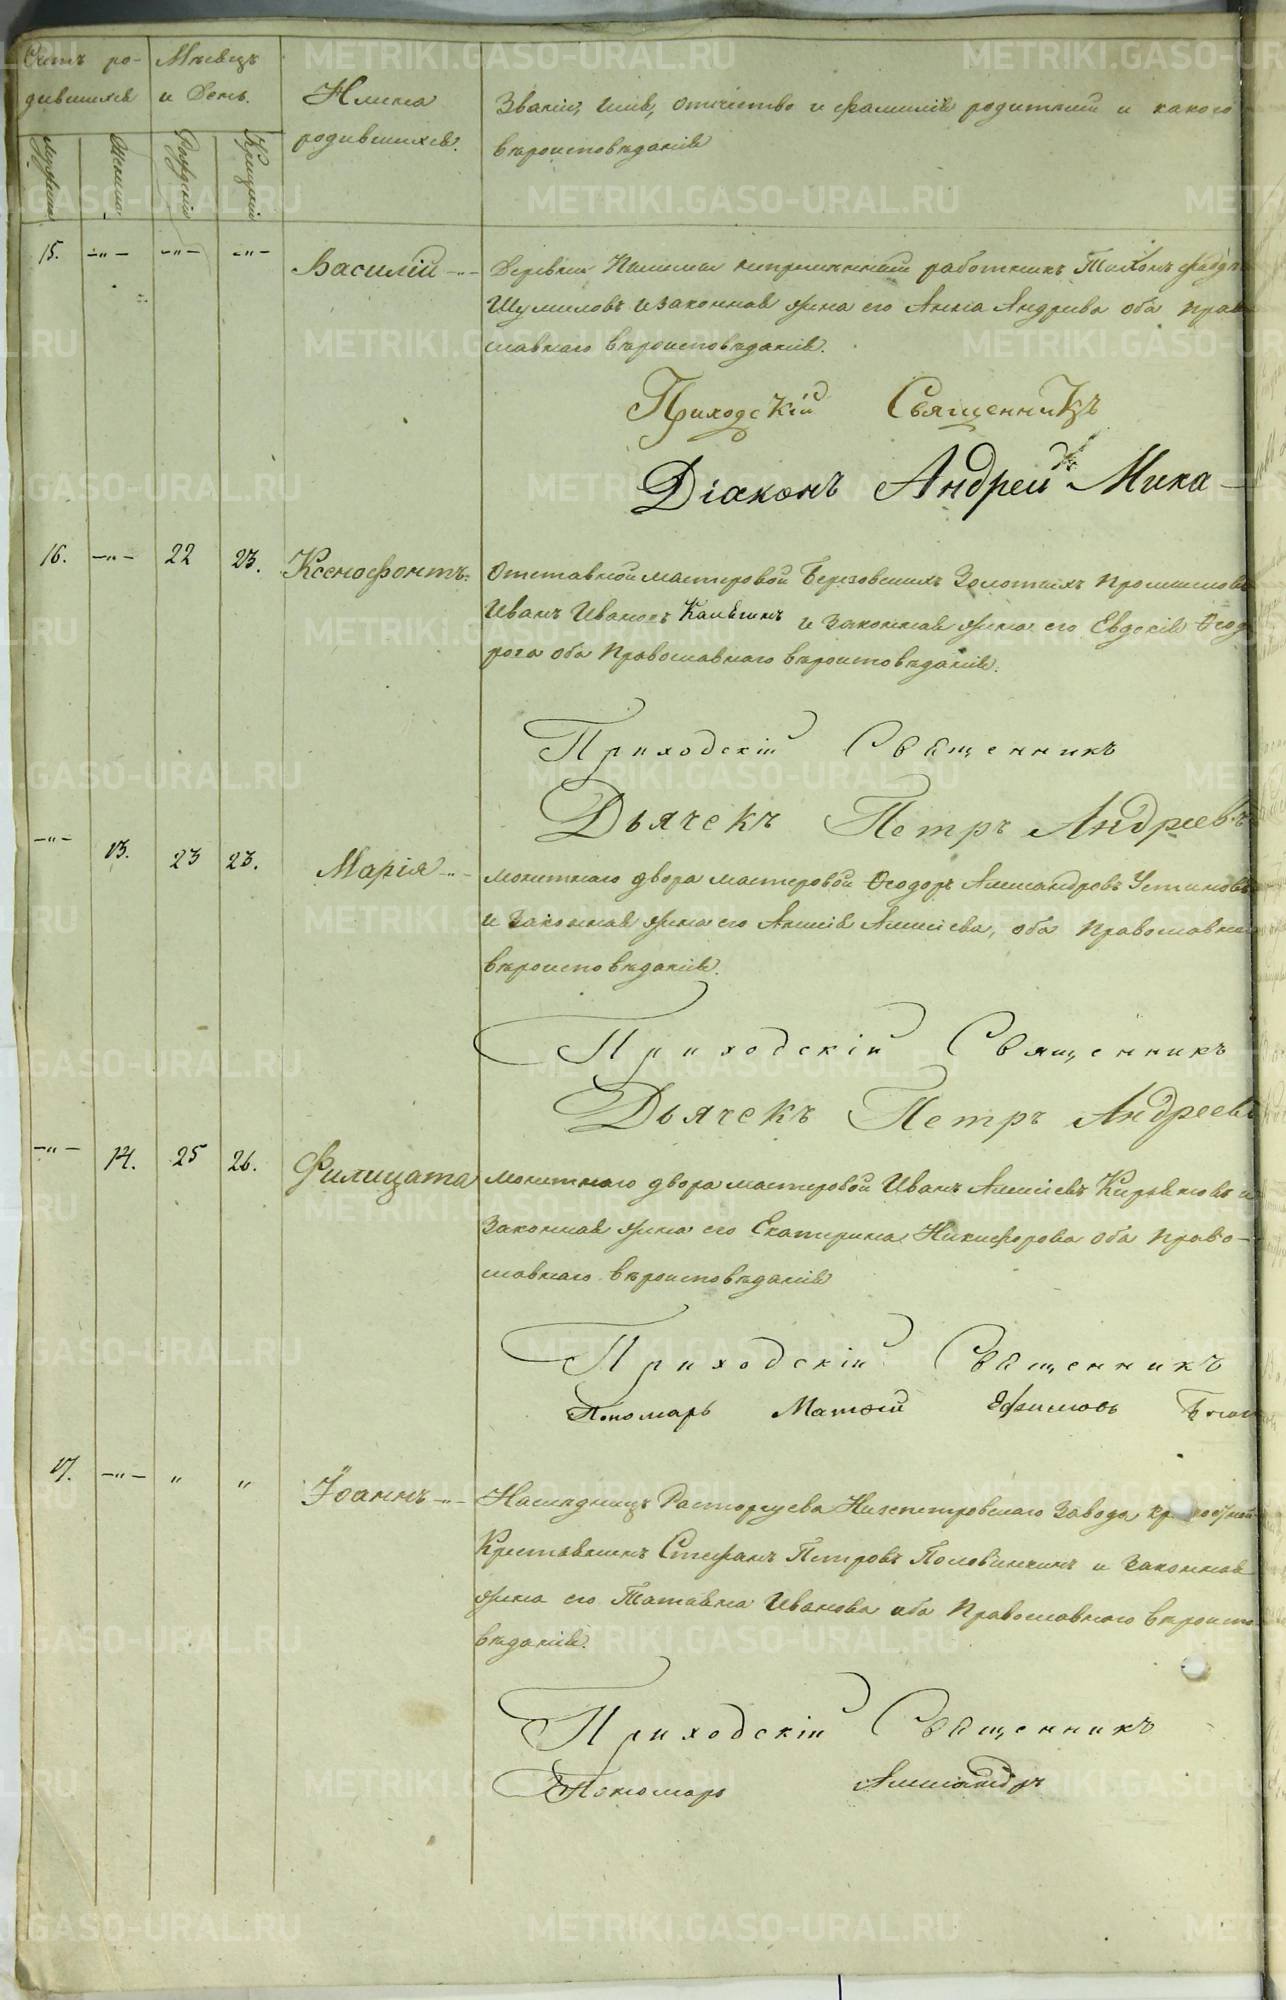 Счетъ ро-
дившихся
Мѣсяцъ
и День.
Имена
родившихся.
Званіе, имя, отчество и фамилія родителей и какого
вѣроисповѣданія
Мужеска
Женска
Рожденія
Крещенія
15. —"— —"— —"— Василій —"— Деревни непремѣнный работникъ Тихонъ
Шумиловъ и законная жена его Анна Андреева оба право
славнаго вѣроисповѣданія.
Приходскій Священникъ
Діаконъ Андрей Мика
16. —"— 22 23. Ксенофонтъ Отставной мастеровой Березовскихъ Золотыхъ Промысловъ
Иванъ Ивановъ и законная жена его Евдокія Ѳеодо
рова оба Православнаго вѣроисповѣданія.
Приходскій Священникъ
Дьячекъ Петръ Андреевъ
—"— 13. 23 23. Марія —"— Монетнаго двора мастеровой Ѳеодоръ Александровъ Устиновъ
и законная жена его Алексѣева, оба Православнаго
вѣроисповѣданія.
Приходскій Священникъ
Дьячекъ Петръ Андреевъ
—"— 14. 25 26. Филицата Монетнаго двора мастеровой Иванъ Алексѣевъ и
законная жена его Екатерина Никифорова оба Право-
славнаго вѣроисповѣданія
Приходскій Священникъ
Пономарь Матѳей Ефимовъ
17. —"— " " Іоаннъ —"— Наслѣдницъ Расторгуева Нязепетровскаго Завода
Крестьянинъ Стефанъ Петровъ Половинкинъ и законная
жена его Татьяна Иванова оба Православнаго вѣроиспо
вѣданія.
Приходскій Священникъ
Пономарь Александръ
METRIKI.GASO-URAL.RU